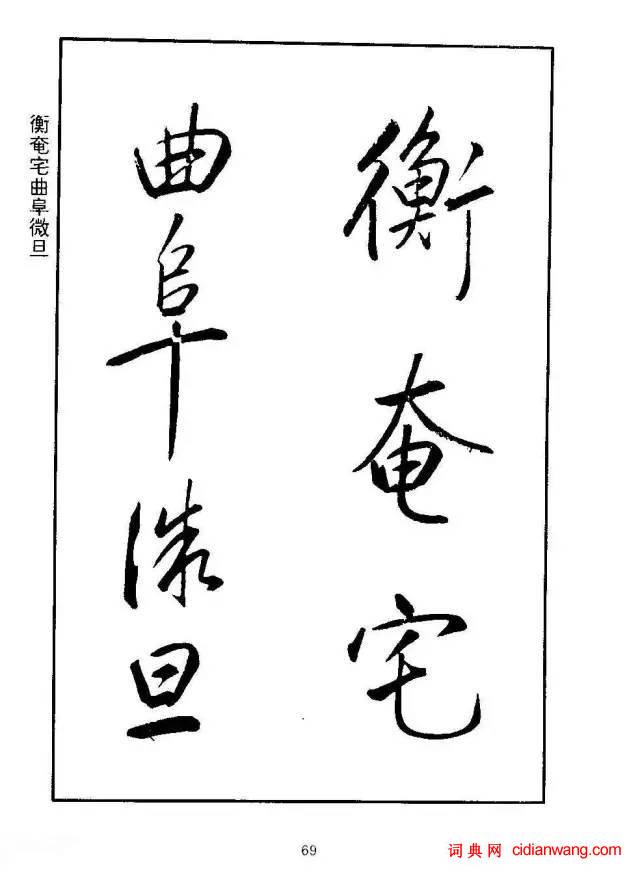 衡奄宅
曲阜微旦
衡奄宅曲阜微旦
69
词典网 cidianwang.com